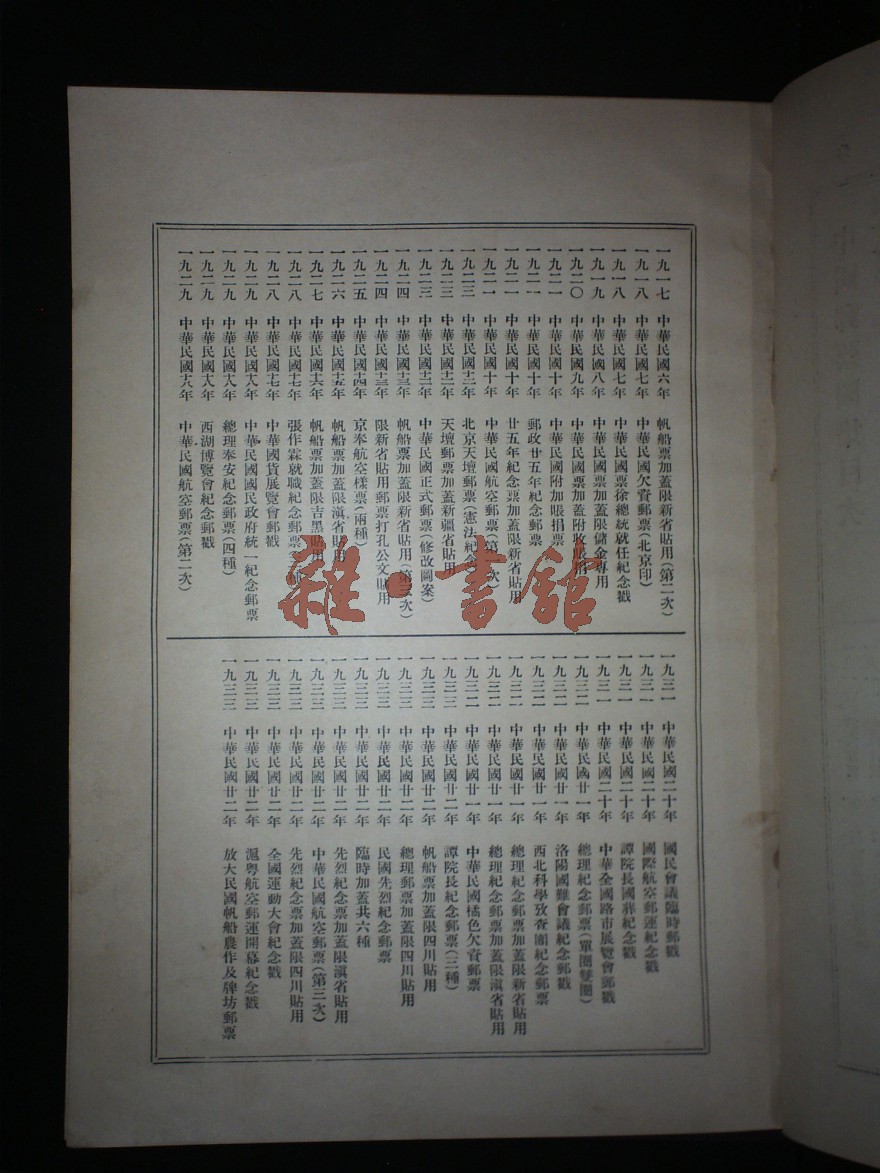 一九一七 中華民國六年 帆船票加蓋限新省貼用(第二次)
一九一八 中華民國七年 中華民國欠資郵票(北京印)
一九一八 中華民國七年 中華民國票徐總統就任紀念戳
一九一九 中華民國八年 中華民國票加蓋限儲金專用
一九二〇 中華民國九年 中華民國票加蓋附收賑捐
一九二一 中華民國十年 中華民國附加賬捐票
一九二一 中華民國十年 郵政廿五年紀念郵票
一九二一 中華民國十年 廿五年紀念票加蓋限新省貼用
一九二一 中華民國十年 中華民國航空郵票(第一次)
一九二三 中華民國十二年 北京天壇郵票(憲法紀念)
一九二三 中華民國十二年 天壇郵票加蓋新疆省貼用
一九二三 中華民國十二年 中華民國正式郵票(修改圖案)
一九二四 中華民國十三年 帆船票加蓋限新省貼用(第三次)
一九二四 中華民國十三年 限新省貼用郵票打孔公文貼用
一九二五 中華民國十四年 京奉航空樣票(兩種)
一九二六 中華民國十五年 帆船票加蓋限滇省貼用
一九二七 中華民國十六年 帆船票加蓋限吉黑貼用
一九二八 中華民國十七年 張作霖就職紀念郵票
一九二八 中華民國十七年 中華國貨展覽會郵戳
一九二九 中華民國十八年 中華民國國民政府統一紀念郵票
一九二九 中華民國十八年 總理奉安紀念郵票(四種)
一九二九 中華民國十八年 西湖博覽會紀念郵戳
一九二九 中華民國十八年 中華民國航空郵票(第二次)
一九三一 中華民國二十年 國民會議臨時郵戳
一九三一 中華民國二十年 國際航空郵運紀念戳
一九三一 中華民國二十年 譚院長國葬紀念戳
一九三一 中華民國二十年 中華全國路市展覽會郵戳
一九三二 中華民國廿一年 總理紀念郵票(單圈雙圈)
一九三二 中華民國廿一年 洛陽國難會議紀念郵戳
一九三二 中華民國廿一年 西北科學攷查團紀念郵票
一九三二 中華民國廿一年 總理紀念郵票加蓋限新省貼用
一九三二 中華民國廿一年 總理紀念郵票加蓋限滇省貼用
一九三二 中華民國廿一年 中華民國橘色欠資郵票
一九三三 中華民國廿二年 譚院長紀念郵票(三種)
一九三三 中華民國廿二年 帆船票加蓋限四川貼用
一九三三 中華民國廿二年 總理郵票加蓋限四川貼用
一九三三 中華民國廿二年 民國先烈紀念郵票
一九三三 中華民國廿二年 臨時加蓋共六種
一九三三 中華民國廿二年 先烈紀念票加蓋限滇省貼用
一九三三 中華民國廿二年 中華民國航空郵票(第三次)
一九三三 中華民國廿二年 先烈紀念票加蓋限四川貼用
一九三三 中華民國廿二年 全國運動大會紀念戳
一九三三 中華民國廿二年 滬粵航空郵運開幕紀念戳
一九三三 中華民國廿二年 放大民國帆船農作及牌坊郵票
雜·書舘